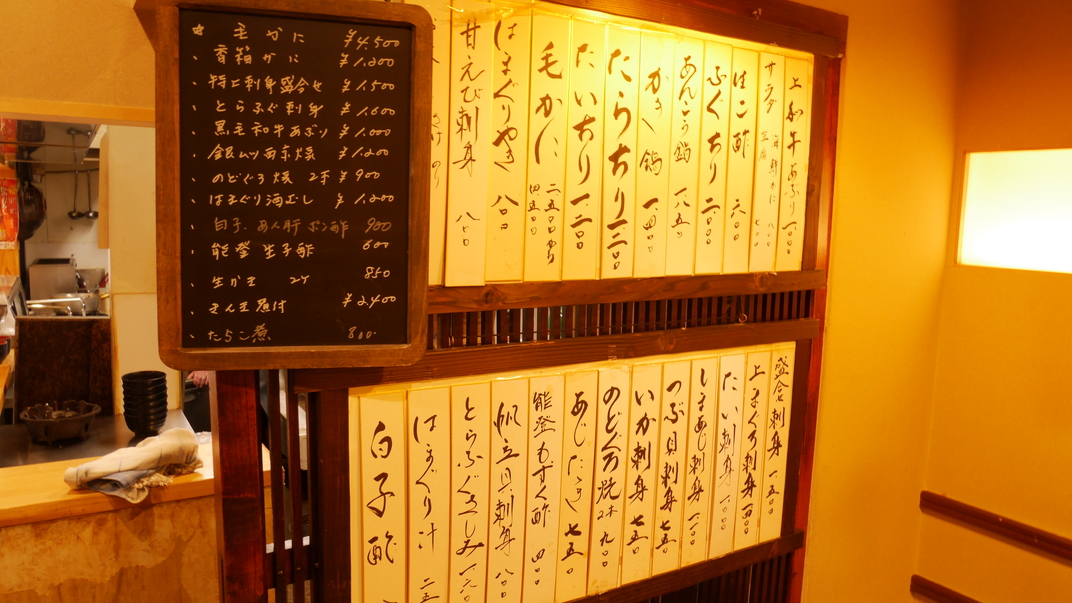 ☆ 毛がに ¥4,500
・香箱がに ¥1,200
・特上刺身盛合せ ¥1,500
・とらふぐ刺身 ¥1,600
・黒毛和牛あぶり ¥1,000
・銀ムツ西京焼 ¥1,200
・のどぐろ焼 2本 ¥900
・はまぐり酒むし ¥1,200
・白子、あん肝ポン酢 900
・能登生子酢 600
・生がき 2ケ 850
・きんき煮付 ¥2,400
・たらこ煮 800
上和牛あぶり 一〇〇〇
サラダ 海鮮 八〇〇
豆腐 七〇〇
ほこ酢 六〇〇
ふぐちり 二、〇〇〇
あんこう鍋 一八五〇
かき鍋 一、四〇〇
たらちり 一二〇〇
たいちり 一二〇〇
毛かに 二五〇〇から 四五〇〇
はまぐりやき 八〇〇
甘えび刺身 八〇〇
のり
盛合せ刺身 一五〇〇
上まぐろ刺身
たい刺身 一、〇〇〇
しまあじ刺身 一、一〇〇
つぶ貝刺身 七五〇
いか刺身 七五〇
のどぐろ焼 2本 九〇〇
あじたたき 七五〇
能登もずく酢 四〇〇
帆立貝刺身 八〇〇
とらふぐさしみ 一六〇〇
はまぐり汁
白子酢